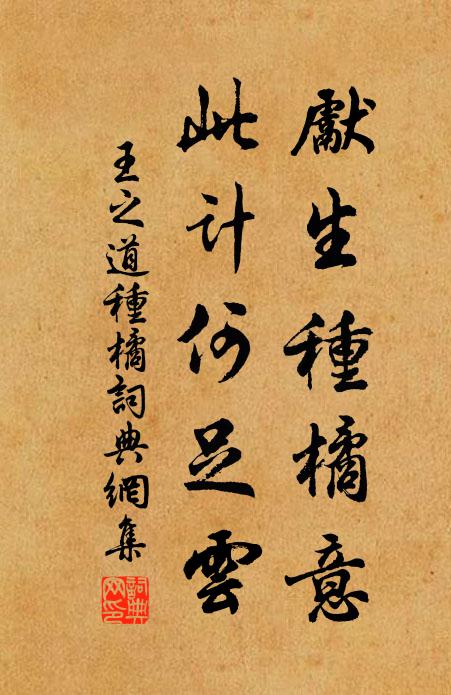 獻生種橘意
此計何足雲
王之道種橘詞典網集
詞典網印